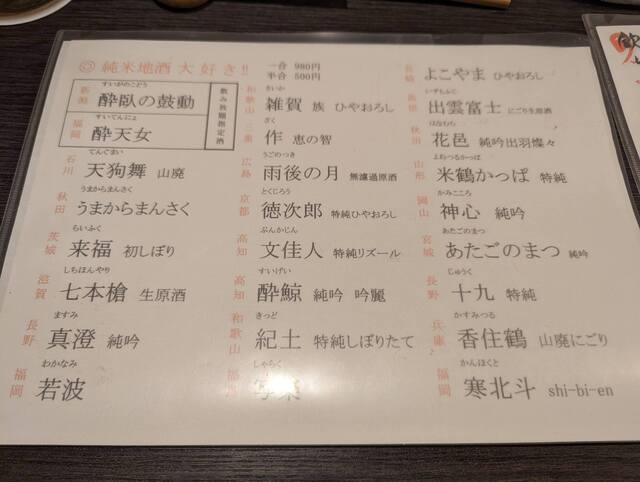 ◎ 純米地酒 大好き!!
一合 980円
半合 500円
飲み放題指定酒
新潟 すいがのこどう 酔臥の鼓動
福岡 すいてんにょ 酔天女
石川 てんぐまい 天狗舞 山廃
秋田 うまからまんさく うまからまんさく
茨城 らいふく 来福 初しぼり
滋賀 しちほんやり 七本槍 生原酒
長野 ますみ 真澄 純吟
福岡 わかなみ 若波
和歌山 さいか 雑賀 族 ひやおろし
三重 ざく 作 恵の智
広島 うごのつき 雨後の月 無濾過原酒
京都 とくじろう 徳次郎 特純ひやおろし
高知 ぶんかじん 文佳人 特純リズール
高知 すいげい 酔鯨 純吟 吟麗
和歌山 きっど 紀土 特純しぼりたて
しゃらく 写楽
長崎 よこやま ひやおろし
島根 いずもふじ 出雲富士 にごり生原酒
秋田 はなむら 花邑 純吟出羽燦々
山形 よねつるかっぱ 米鶴かっぱ 特純
岡山 かみこころ 神心 純吟
宮城 あたごのまつ あたごのまつ 純吟
長野 じゅうく 十九 特純
兵庫 かすみつる 香住鶴 山廃にごり
福岡 かんほくと 寒北斗 shi-bi-en